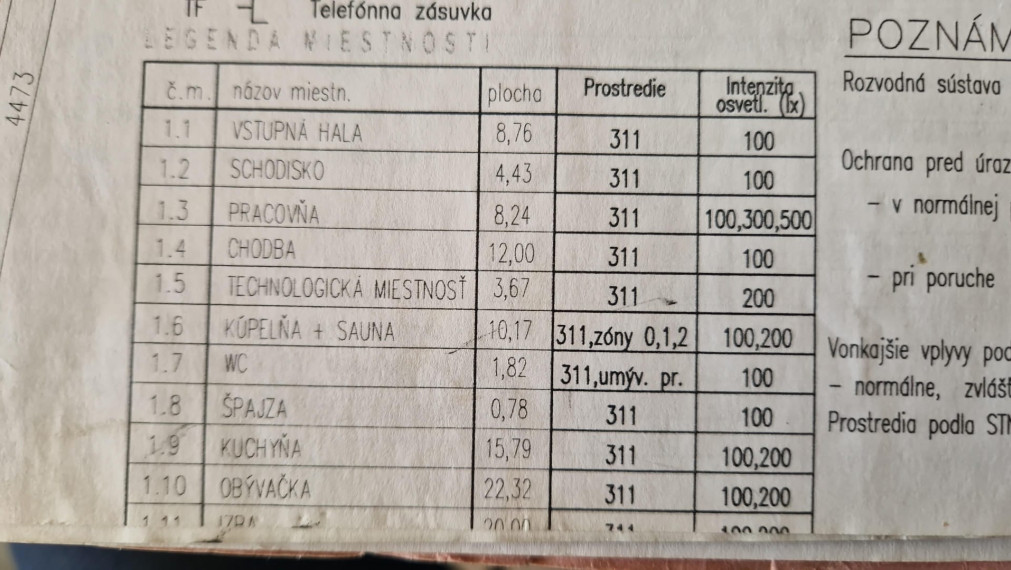 TF Telefónna zásuvka
LEGENDA MIESTNOSTI
č.m. názov miestn. plocha Prostredie Intenzita osvetl. (lx)
1.1 VSTUPNÁ HALA 8,76 311 100
1.2 SCHODISKO 4,43 311 100
1.3 PRACOVŇA 8,24 311 100,300,500
1.4 CHODBA 12,00 311 100
1.5 TECHNOLOGICKÁ MIESTNOSŤ 3,67 311 200
1.6 KÚPELŇA + SAUNA 10,17 311,zóny 0,1,2 100,200
1.7 WC 1,82 311,umýv. pr. 100
1.8 ŠPAJZA 0,78 311 100
1.9 KUCHYŇA 15,79 311 100,200
1.10 OBÝVAČKA 22,32 311 100,200
1.11 IZBA 20,00 311 100,200
4473
POZNÁM
Rozvodná sústava
Ochrana pred úraz
– v normálnej
– pri poruche
Vonkajšie vplyvy pod
– normálne, zvlášť
Prostredia podla STN